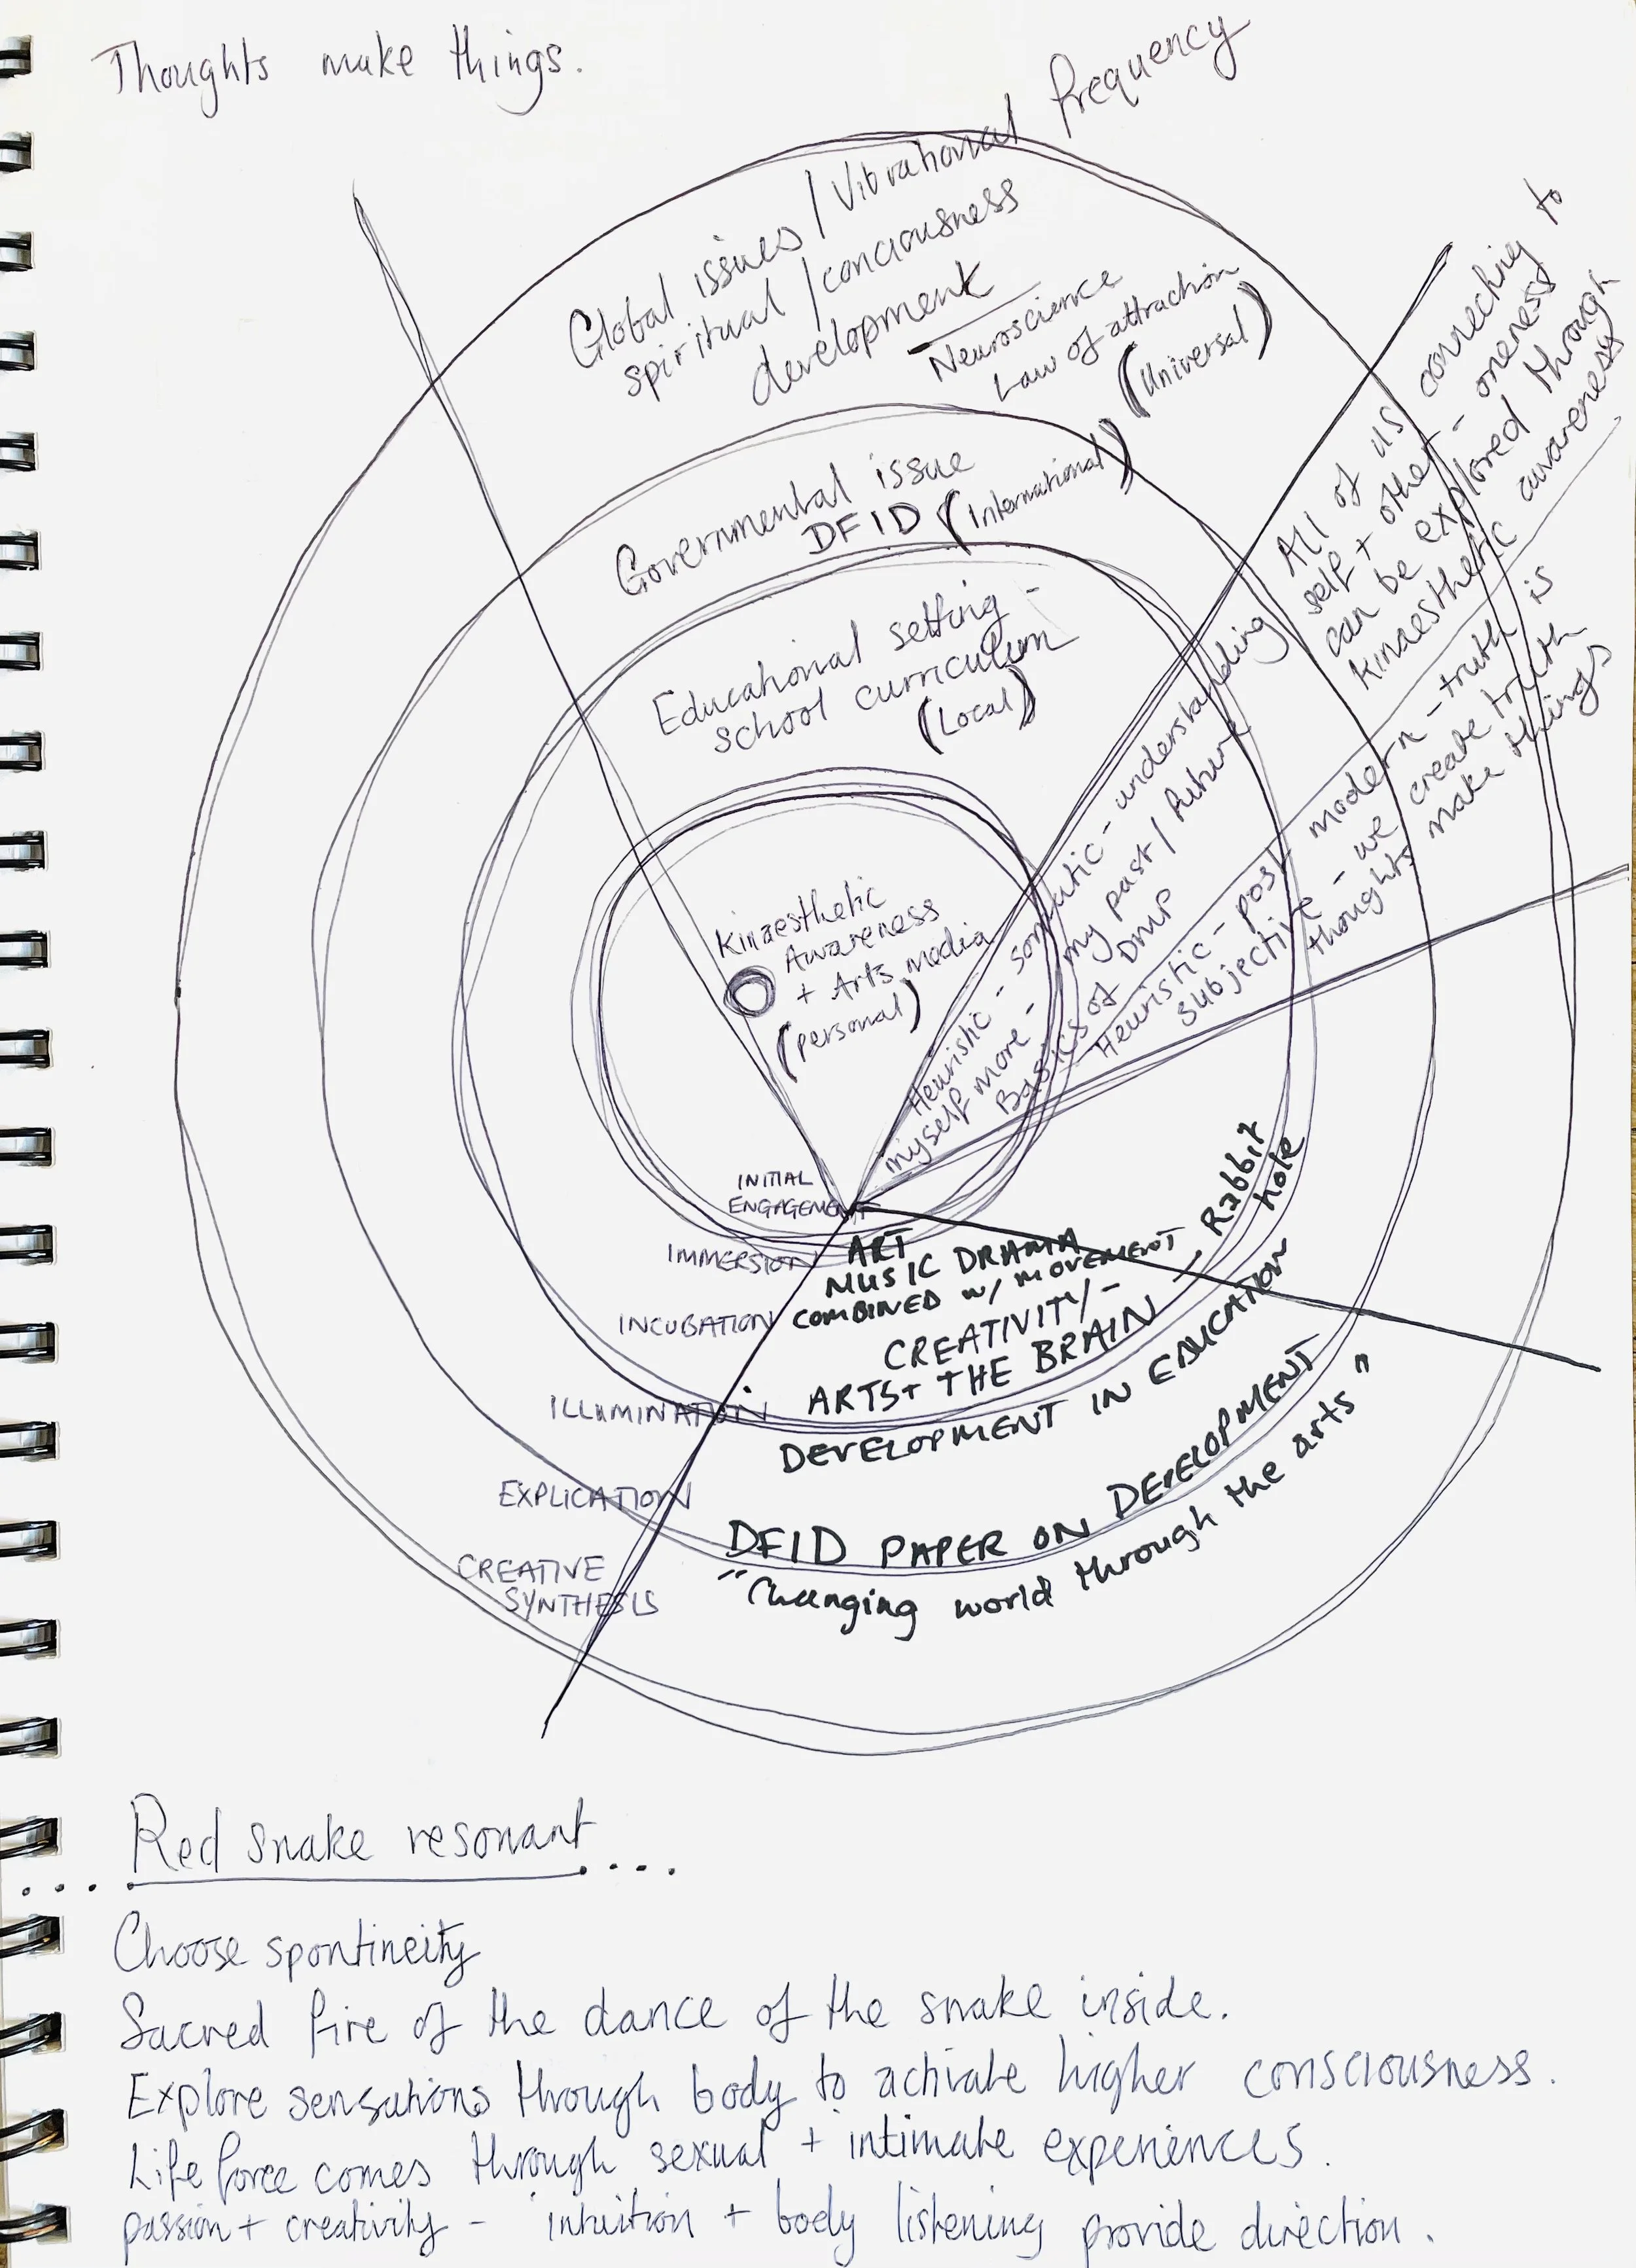 Thoughts make things.
Global issues / Vibrational frequency
spiritual / conciousness
development
Neuroscience
Law of attraction
(Universal)
Governmental issue
DFID (International)
Educational setting -
school curriculum
(Local)
Kinaesthetic
Awareness
+ Arts media
(personal)
All of us connecting to
self + other - oneness
can be explored through
kinaesthetic awareness
Heuristic - somatic - understanding
myself more - my past / future
Basics of DMP
Heuristic - post modern - truth is
subjective - we create truth
thoughts make things
INITIAL
ENGAGEMENT
IMMERSION
INCUBATION
ILLUMINATION
EXPLICATION
CREATIVE
SYNTHESIS
ART
MUSIC DRAMA
COMBINED w/ MOVEMENT
CREATIVITY/-
ARTS+ THE BRAIN
— Rabbit
hole
DEVELOPMENT IN EDUCATION
DFID PAPER ON DEVELOPMENT
"Changing world through the arts"
Red snake resonant
Choose spontineity
Sacred fire of the dance of the snake inside.
Explore sensations through body to activate higher consciousness.
Life force comes through sexual + intimate experiences.
passion + creativity - intuition + body listening provide direction.